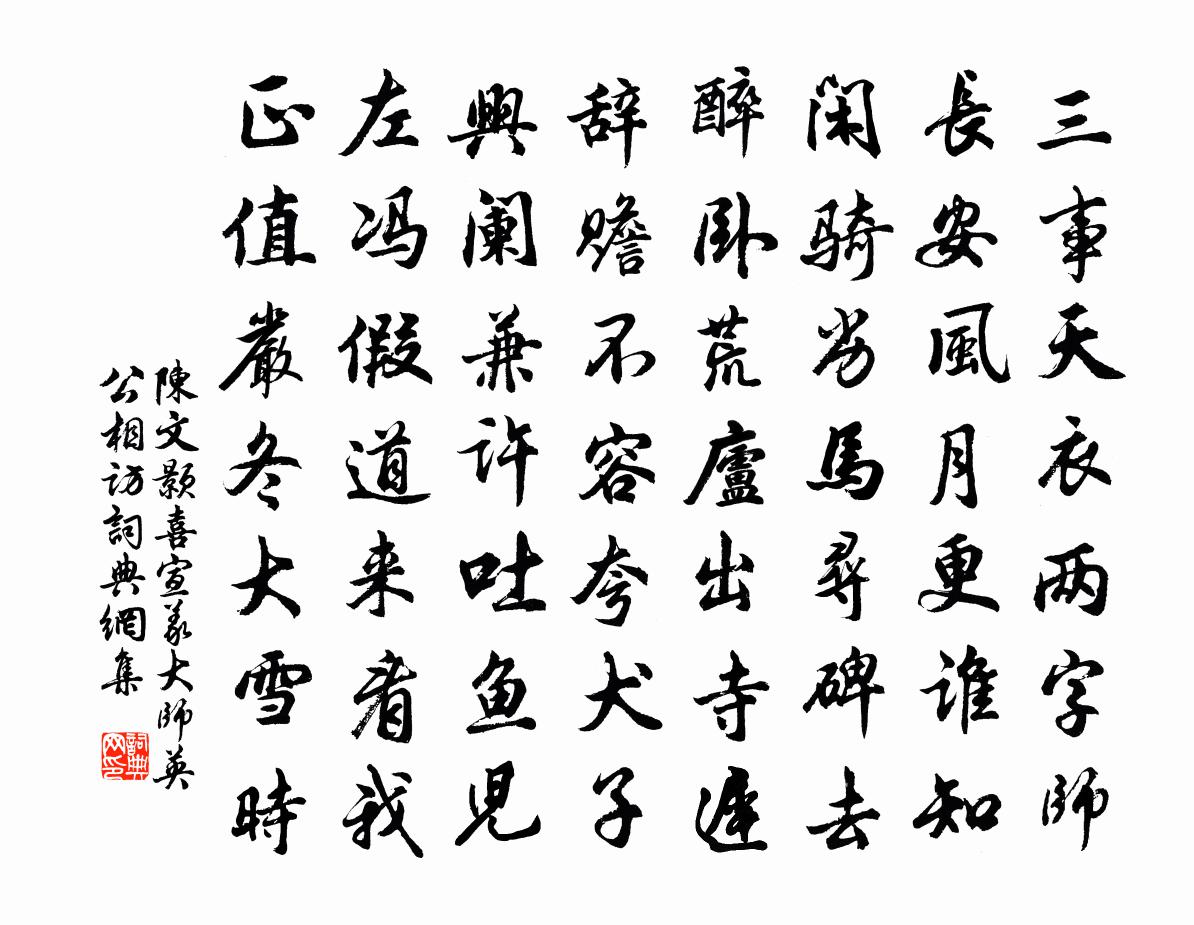 三事天衣两字師
長安風月更誰知
閑騎劣馬尋碑去
醉卧荒廬出寺遲
辞贍不容夸犬子
興阑兼许吐鱼児
左冯假道来看我
正值嚴冬大雪時
陳文颢喜宣義大師英
公相访詞典網集
詞典网印